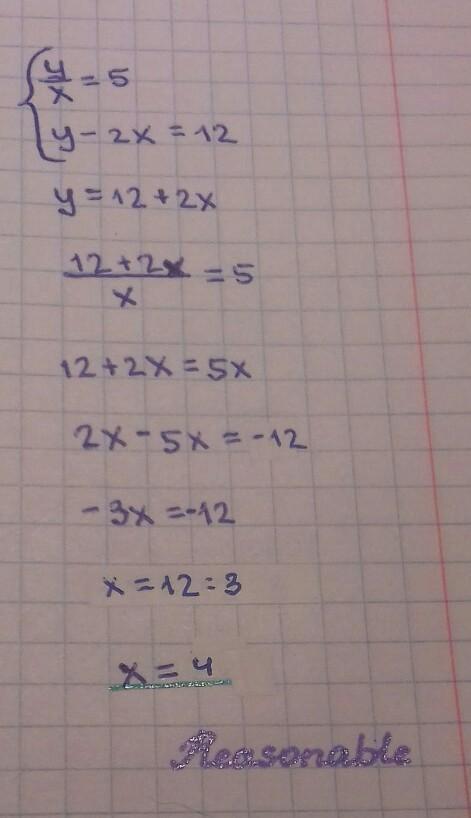 y/x = 5
y - 2x = 12
y = 12 + 2x
12 + 2x / x = 5
12 + 2x = 5x
2x - 5x = -12
-3x = -12
x = 12 : 3
x = 4
Reasonable